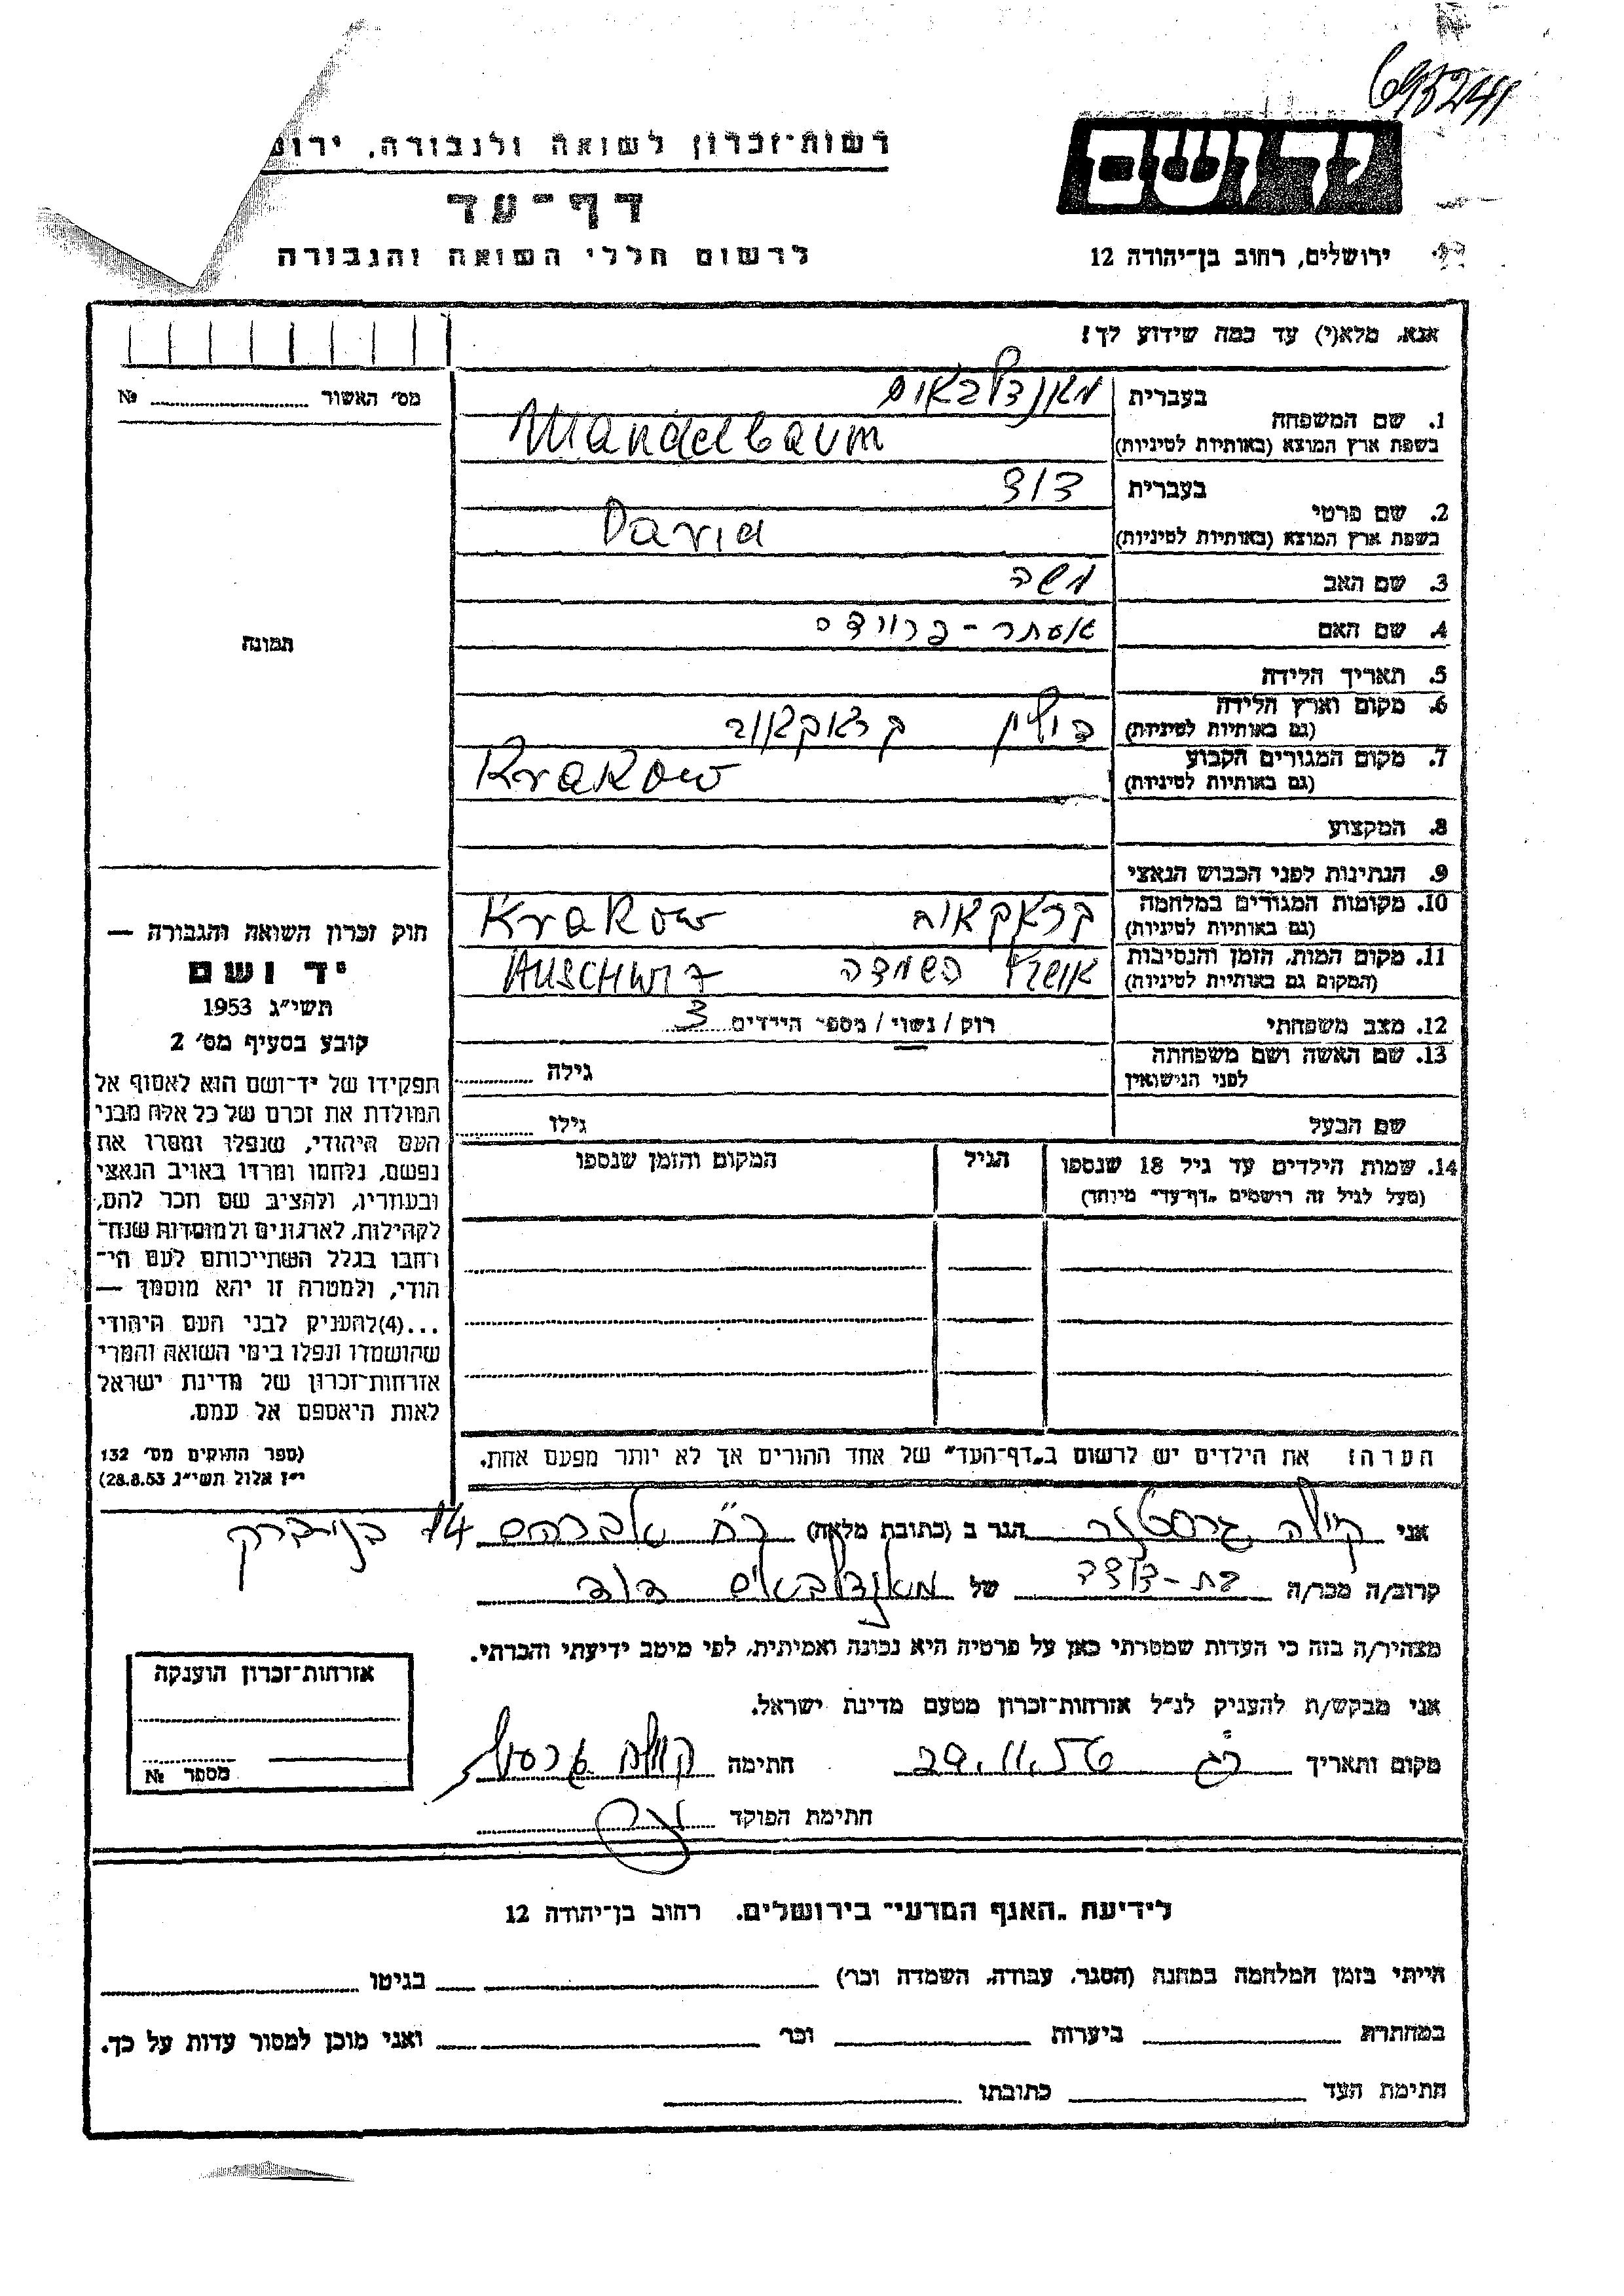 695241
יד ושם
ירושלים, רחוב בן־יהודה 12
רשות־זכרון לשואה ולגבורה,
דף־עד
לרשום חללי השואה והגבורה
אנא, מלא(י) עד כמה שידוע לך!
מס׳ האשור № ........
תמונה
1. שם המשפחה
בעברית מאנדלבאום
בשפת ארץ המוצא (באותיות לטיניות) Mandelbaum
2. שם פרטי
בעברית דוד
בשפת ארץ המוצא (באותיות לטיניות) David
3. שם האב משה
4. שם האם אסתר-פריידה
5. תאריך הלידה
6. מקום וארץ הלידה
(גם באותיות לטיניות) פולין קראקאוב
7. מקום המגורים הקבוע
(גם באותיות לטיניות) Krakow
8. המקצוע
9. הנתינות לפני הכבוש הנאצי
10. מקומות המגורים במלחמה
(גם באותיות לטיניות) קראקאוב Krakow
11. מקום המות, הזמן והנסיבות
(המקום גם באותיות לטיניות) השמדה AUSCHWIZ
12. מצב משפחתי רוק / נשוי / מספר הילדים 3
13. שם האשה ושם משפחתה
לפני הנישואין גילה ........
שם הבעל גילו ........
14. שמות הילדים עד גיל 18 שנספו הגיל המקום והזמן שנספו
(מעל לגיל זה רושמים „דף־עד״ מיוחד)
הערה: את הילדים יש לרשום ב„דף־העד״ של אחד ההורים אך לא יותר מפעם אחת.
חוק זכרון השואה והגבורה —
יד ושם
תשי״ג 1953
קובע בסעיף מס׳ 2
תפקידו של יד־ושם הוא לאסוף אל
המולדת את זכרם של כל אלה מבני
העם היהודי, שנפלו ומסרו את
נפשם, נלחמו ומרדו באויב הנאצי
ובעוזריו, ולהציב שם וזכר להם,
לקהילות, לארגונים ולמוסדות שנח־
רבו בגלל השתייכותם לעם הי־
הודי, ולמטרה זו יהא מוסמך —
...(4)להעניק לבני העם היהודי
שהושמדו ונפלו בימי השואה והמרי
אזרחות־זכרון של מדינת ישראל
לאות היאספם אל עמם.
(ספר החוקים מס׳ 132
י״ז אלול תשי״ג 28.8.53)
אני קילה גרסטנר הגר ב (כתובת מלאה) אברהם 14 בני ברק
קרוב/ה מכר/ה בת-דודה של מאנדלבאום דוד
מצהיר/ה בזה כי העדות שמסרתי כאן על פרטיה היא נכונה ואמיתית, לפי מיטב ידיעתי והכרתי.
אני מבקש/ת להעניק לנ״ל אזרחות־זכרון מטעם מדינת ישראל.
מקום ותאריך 29.11.56 חתימה
חתימת הפוקד
אזרחות־זכרון הוענקה
מספר №
לידיעת „האגף המדעי״ בירושלים. רחוב בן־יהודה 12
הייתי בזמן המלחמה במחנה (הסגר, עבודה, השמדה וכר׳) בגיטו
במחתרת ביערות וכר׳ ואני מוכן למסור עדות על כך.
חתימת העד כתובתו